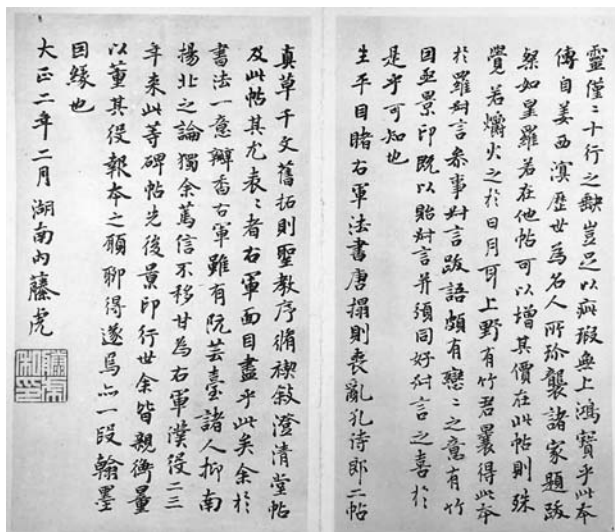 靈僅二十行之缺豈足以疵瑕無上鴻寶乎此本
傳自姜西溟歷世為名人所珍襲諸家題跋
粲如星羅若在他帖可以增其價在此帖則殊
覺若爝火之於日月耳上野有竹君曩得此本
於羅尗言參事尗言跋語頗有戀〻之意有竹
因亟景印既以貽尗言并頒同好尗言之喜於
是乎可知也
生平目睹右軍法書唐搨則喪亂孔侍郎二帖
真草千文舊拓則聖教序脩禊敘澄清堂帖
及此帖其尤表〻者右軍面目盡乎此矣余於
書法一意瓣香右軍雖有阮芸臺諸人抑南
揚北之論獨余篤信不移甘為右軍濮役二三
年來此等碑帖先後景印行世余皆親衡量
以董其役報本之願聊得遂焉亦一段翰墨
因緣也
大正二年二月 湖南內藤虎